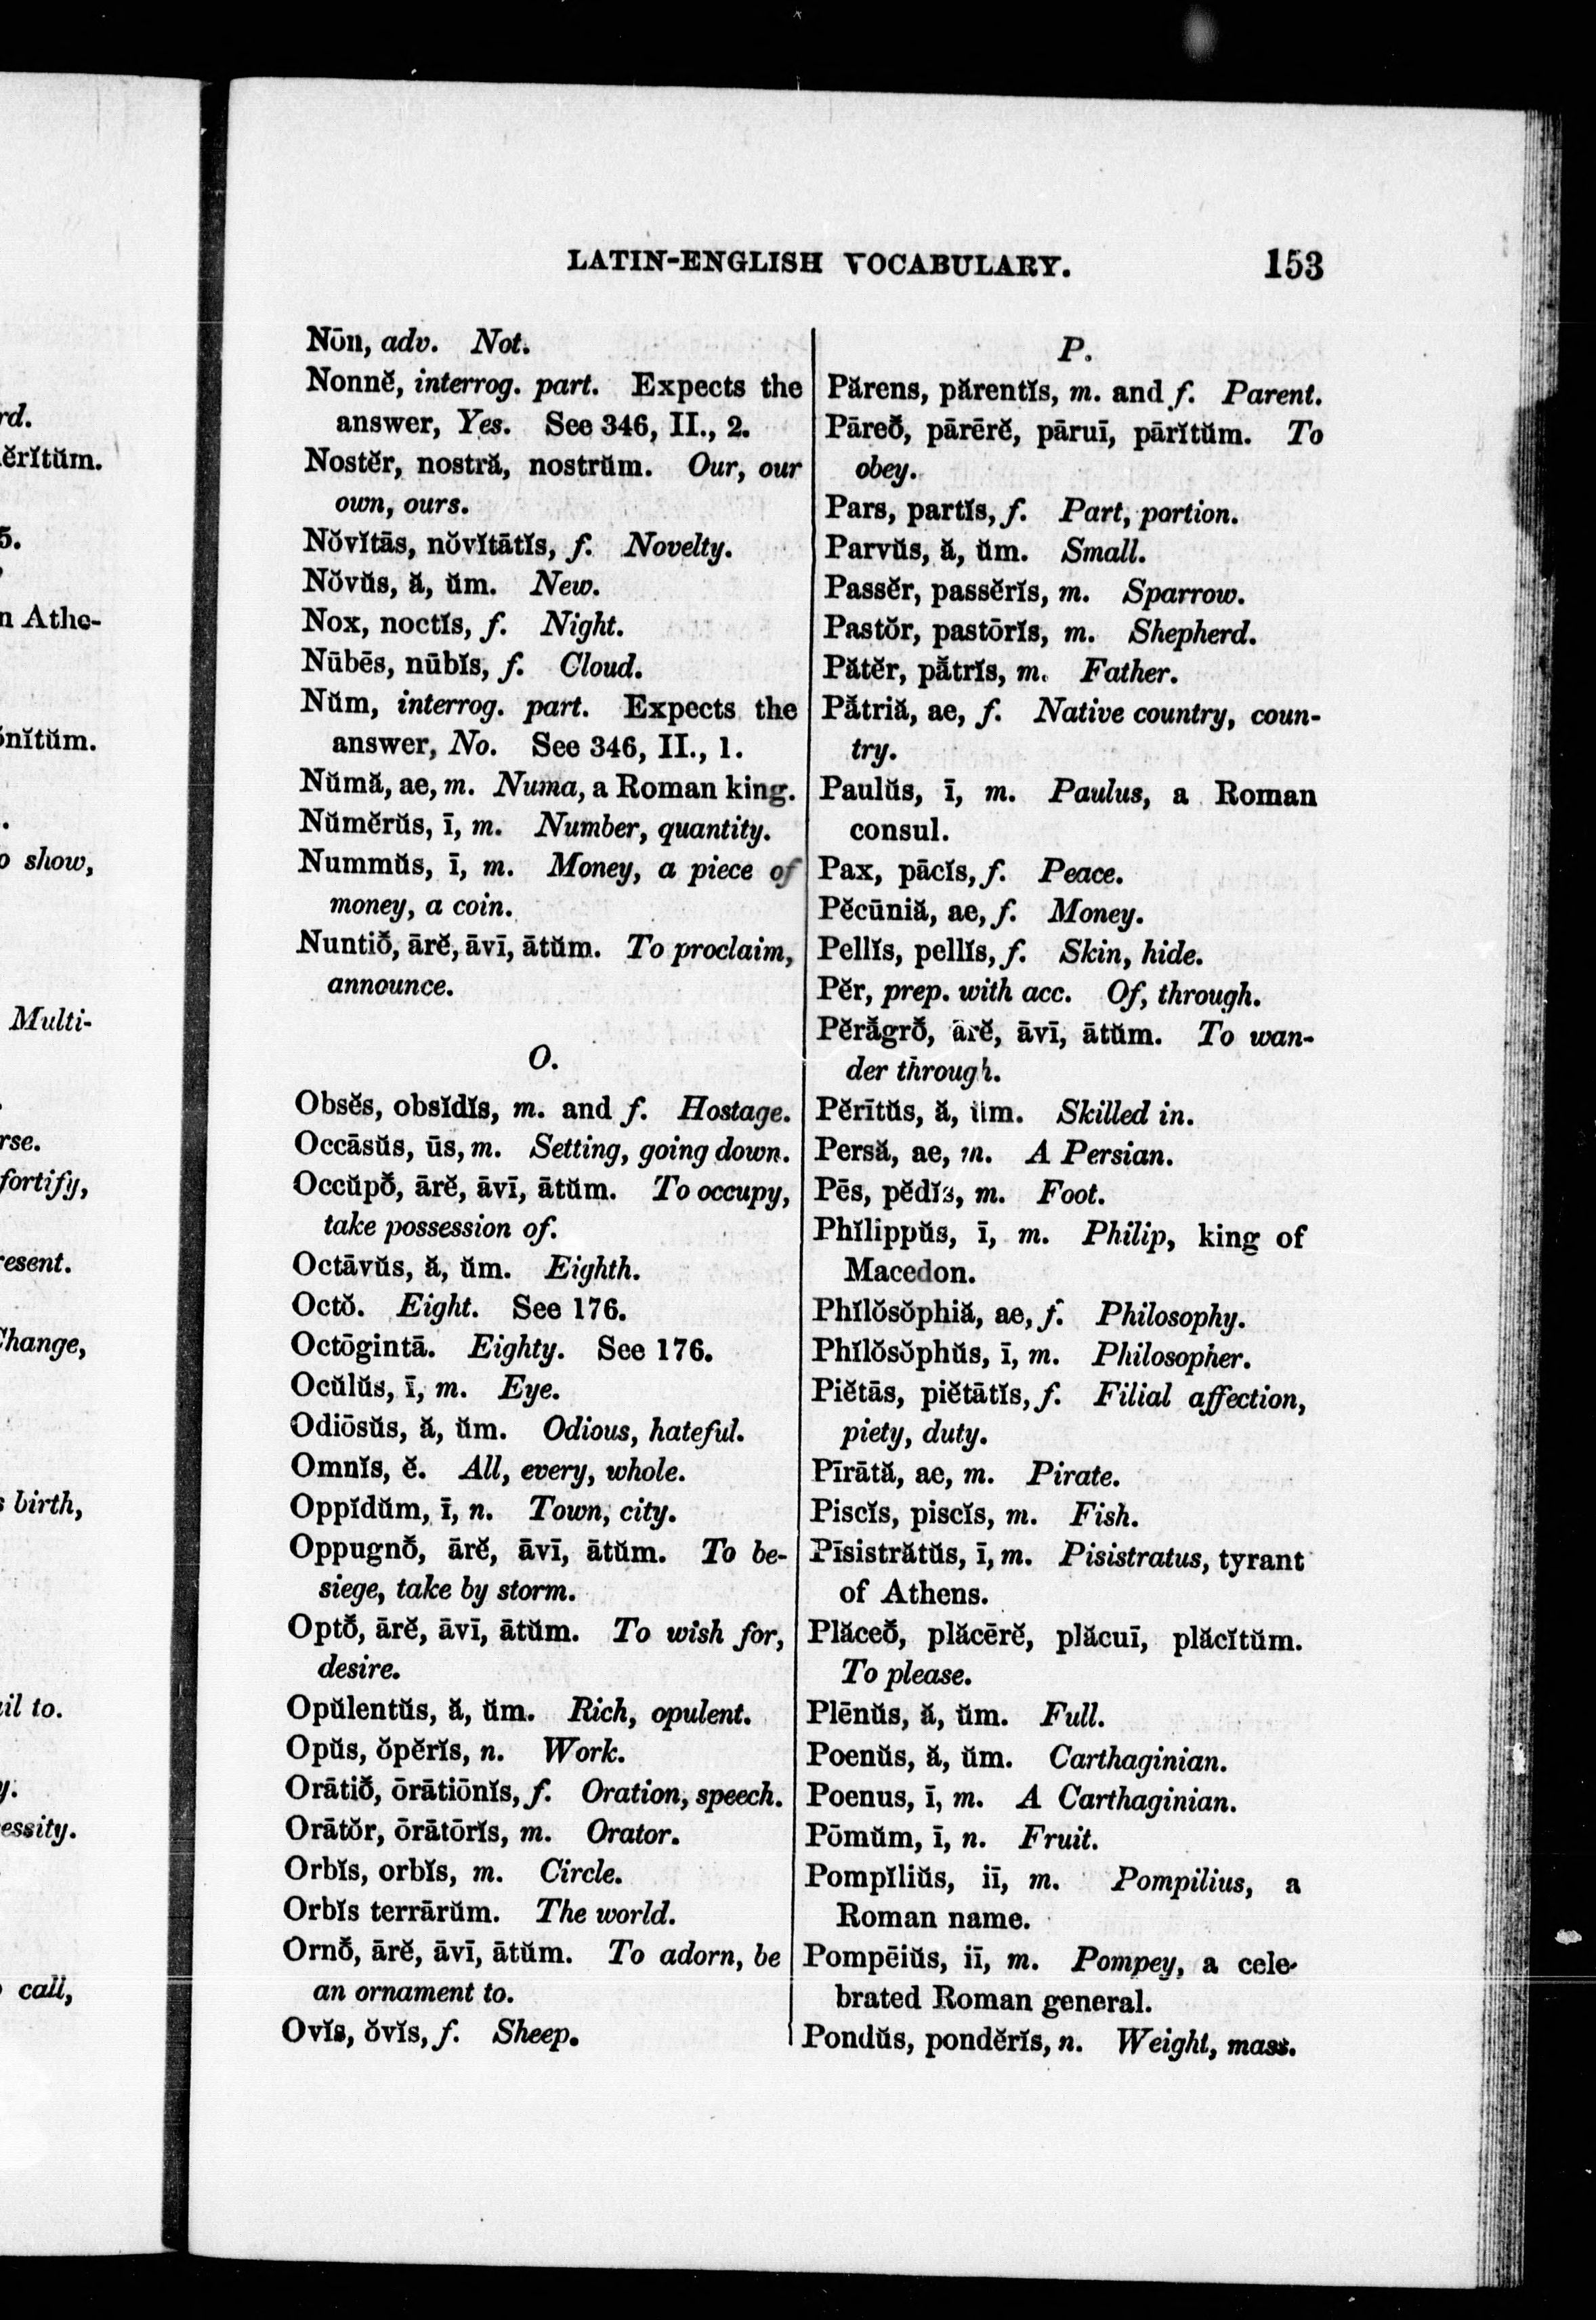 rd.
ĕrĭtŭm.
5.
n Athe-
ŏnĭtŭm.
show,
Multi-
rse.
fortify,
resent.
Change,
birth,
il to.
y.
essity.
call,
LATIN-ENGLISH VOCABULARY. 153
Nōn, adv. Not.
Nonnĕ, interrog. part. Expects the
answer, Yes. See 346, II., 2.
Nostĕr, nostră, nostrŭm. Our, our
own, ours.
Nŏvĭtās, nŏvĭtātĭs, f. Novelty.
Nŏvŭs, ă, ŭm. New.
Nox, noctĭs, f. Night.
Nūbēs, nūbĭs, f. Cloud.
Nŭm, interrog. part. Expects the
answer, No. See 346, II., 1.
Nŭmă, ae, m. Numa, a Roman king.
Nŭmĕrŭs, ī, m. Number, quantity.
Nummŭs, ī, m. Money, a piece of
money, a coin.
Nuntiō̆, ārĕ, āvī, ātŭm. To proclaim,
announce.
O.
Obsĕs, obsĭdĭs, m. and f. Hostage.
Occāsŭs, ūs, m. Setting, going down.
Occŭpō̆, ārĕ, āvī, ātŭm. To occupy,
take possession of.
Octāvŭs, ă, ŭm. Eighth.
Octŏ. Eight. See 176.
Octōgintā. Eighty. See 176.
Ocŭlŭs, ī, m. Eye.
Odiōsŭs, ă, ŭm. Odious, hateful.
Omnĭs, ĕ. All, every, whole.
Oppĭdŭm, ī, n. Town, city.
Oppugnō̆, ārĕ, āvī, ātŭm. To be-
siege, take by storm.
Optō̆, ārĕ, āvī, ātŭm. To wish for,
desire.
Opŭlentŭs, ă, ŭm. Rich, opulent.
Opŭs, ŏpĕrĭs, n. Work.
Orātiō̆, ōrātiōnĭs, f. Oration, speech.
Orātŏr, ōrātōrĭs, m. Orator.
Orbĭs, orbĭs, m. Circle.
Orbĭs terrārŭm. The world.
Ornō̆, ārĕ, āvī, ātŭm. To adorn, be
an ornament to.
Ovĭs, ŏvĭs, f. Sheep.
P.
Părens, părentĭs, m. and f. Parent.
Pāreō̆, pārērĕ, pāruī, pārĭtŭm. To
obey.
Pars, partĭs, f. Part, portion.
Parvŭs, ă, ŭm. Small.
Passĕr, passĕrĭs, m. Sparrow.
Pastŏr, pastōrĭs, m. Shepherd.
Pătĕr, pā̆trĭs, m. Father.
Pā̆triă, ae, f. Native country, coun-
try.
Paulŭs, ī, m. Paulus, a Roman
consul.
Pax, pācĭs, f. Peace.
Pĕcūniă, ae, f. Money.
Pellĭs, pellĭs, f. Skin, hide.
Pĕr, prep. with acc. Of, through.
Pĕrā̆grō̆, ārĕ, āvī, ātŭm. To wan-
der through.
Pĕrītŭs, ă, ŭm. Skilled in.
Persă, ae, m. A Persian.
Pēs, pĕdĭs, m. Foot.
Phĭlippŭs, ī, m. Philip, king of
Macedon.
Phĭlŏsŏphiă, ae, f. Philosophy.
Phĭlŏsŏphŭs, ī, m. Philosopher.
Piĕtās, piĕtātĭs, f. Filial affection,
piety, duty.
Pīrātă, ae, m. Pirate.
Piscĭs, piscĭs, m. Fish.
Pīsistrătŭs, ī, m. Pisistratus, tyrant
of Athens.
Plăceō̆, plăcērĕ, plăcuī, plăcĭtŭm.
To please.
Plēnŭs, ă, ŭm. Full.
Poenŭs, ă, ŭm. Carthaginian.
Poenus, ī, m. A Carthaginian.
Pōmŭm, ī, n. Fruit.
Pompĭliŭs, iī, m. Pompilius, a
Roman name.
Pompēiŭs, iī, m. Pompey, a cele-
brated Roman general.
Pondŭs, pondĕrĭs, n. Weight, mass.